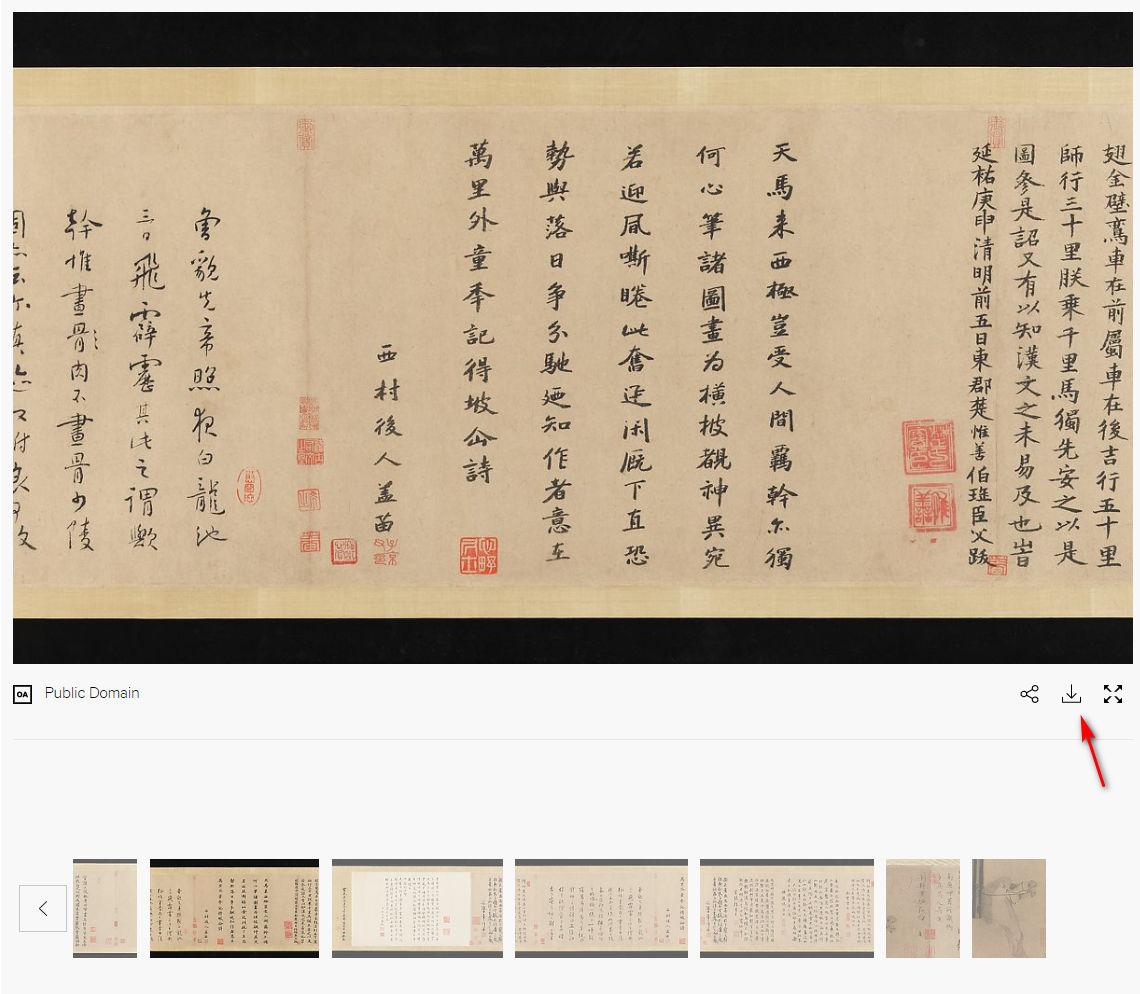 翅金壁鸞車在前屬車在後吉行五十里
師行三十里朕乗千里馬獨先安之以是
圖參是詔又有以知漢文之未易及也旹
延祐庚申清明前五日東郡楚惟善伯珪臣父跋
天馬来西極豈受人間羈幹尒獨
何心筆諸圖畫為横披覩神異宛
若迎凮嘶睠此奮迅闲厩下直恐
勢與落日争分馳廼知作者意在
萬里外童秊記得坡仚詩
西村後人盖苗
曾貌先帝照夜白龍池
三日飛霹靂其此之謂歟
幹惟畫骨肉不畫骨少陵
OA Public Domain